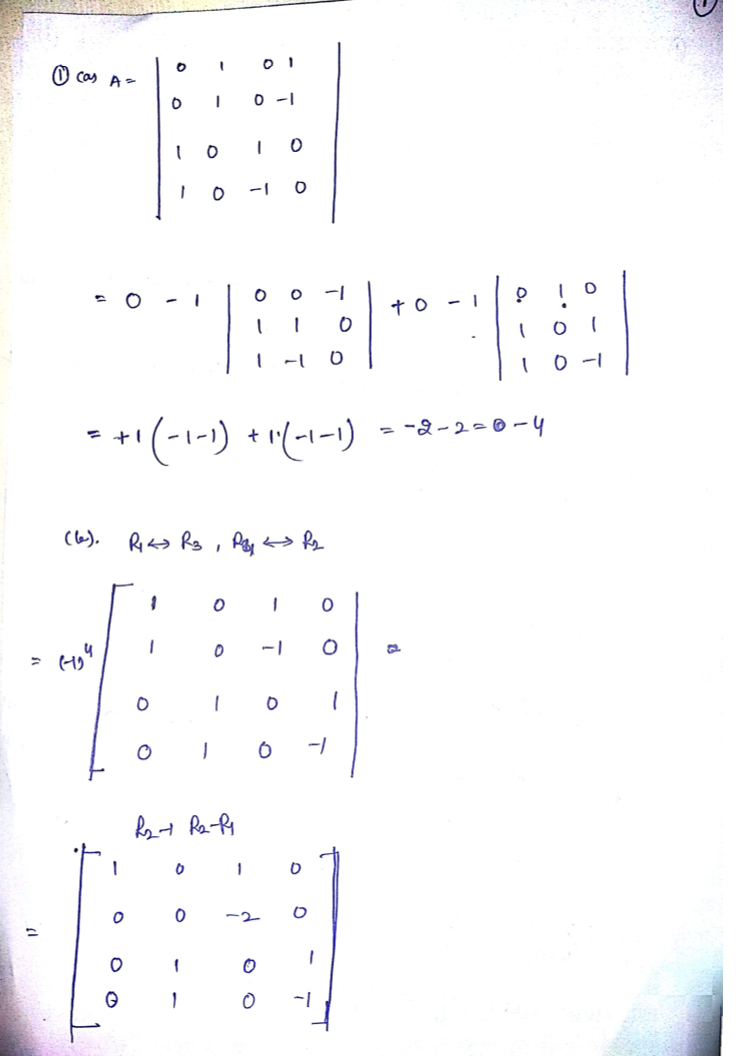 ①
① (a) A = | 0 1 0 1 |
| 0 1 0 -1 |
| 1 0 1 0 |
| 1 0 -1 0 |
= 0 - 1 | 0 0 -1 | + 0 - 1 | 0 1 0 |
| 1 1 0 | | 1 0 1 |
| 1 -1 0 | | 1 0 -1 |
= +1 (-1-1) + 1·(-1-1) = -2-2 = 0-4
(b). R₁ ↔ R₃ , R₄ ↔ R₂
= (-1)⁴ [ 1 0 1 0 | =
1 0 -1 0
0 1 0 1
0 1 0 -1
R₂ → R₂-R₁
= [ 1 0 1 0 ]
0 0 -2 0
0 1 0 1
0 1 0 -1